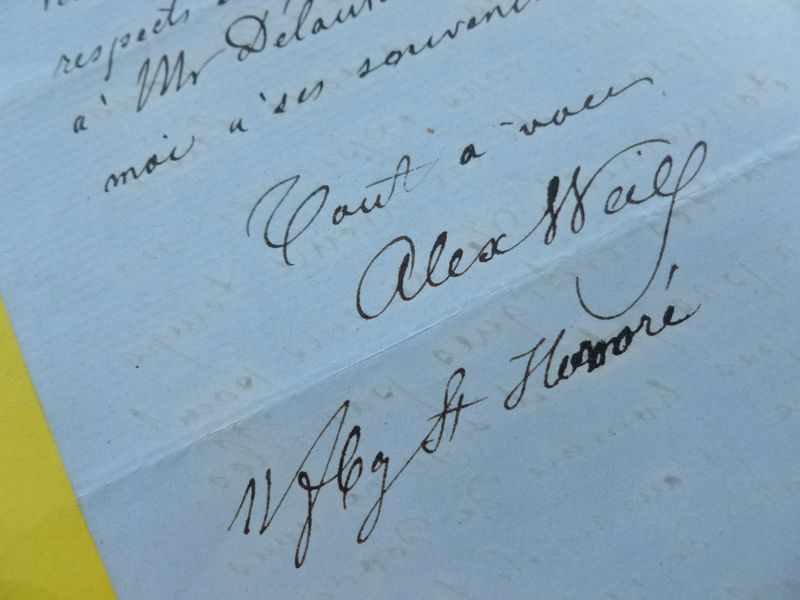 respects
à Mr Delau
moi à ses souveni
Tout à vous
Alex Weill
11 fbg St Honoré